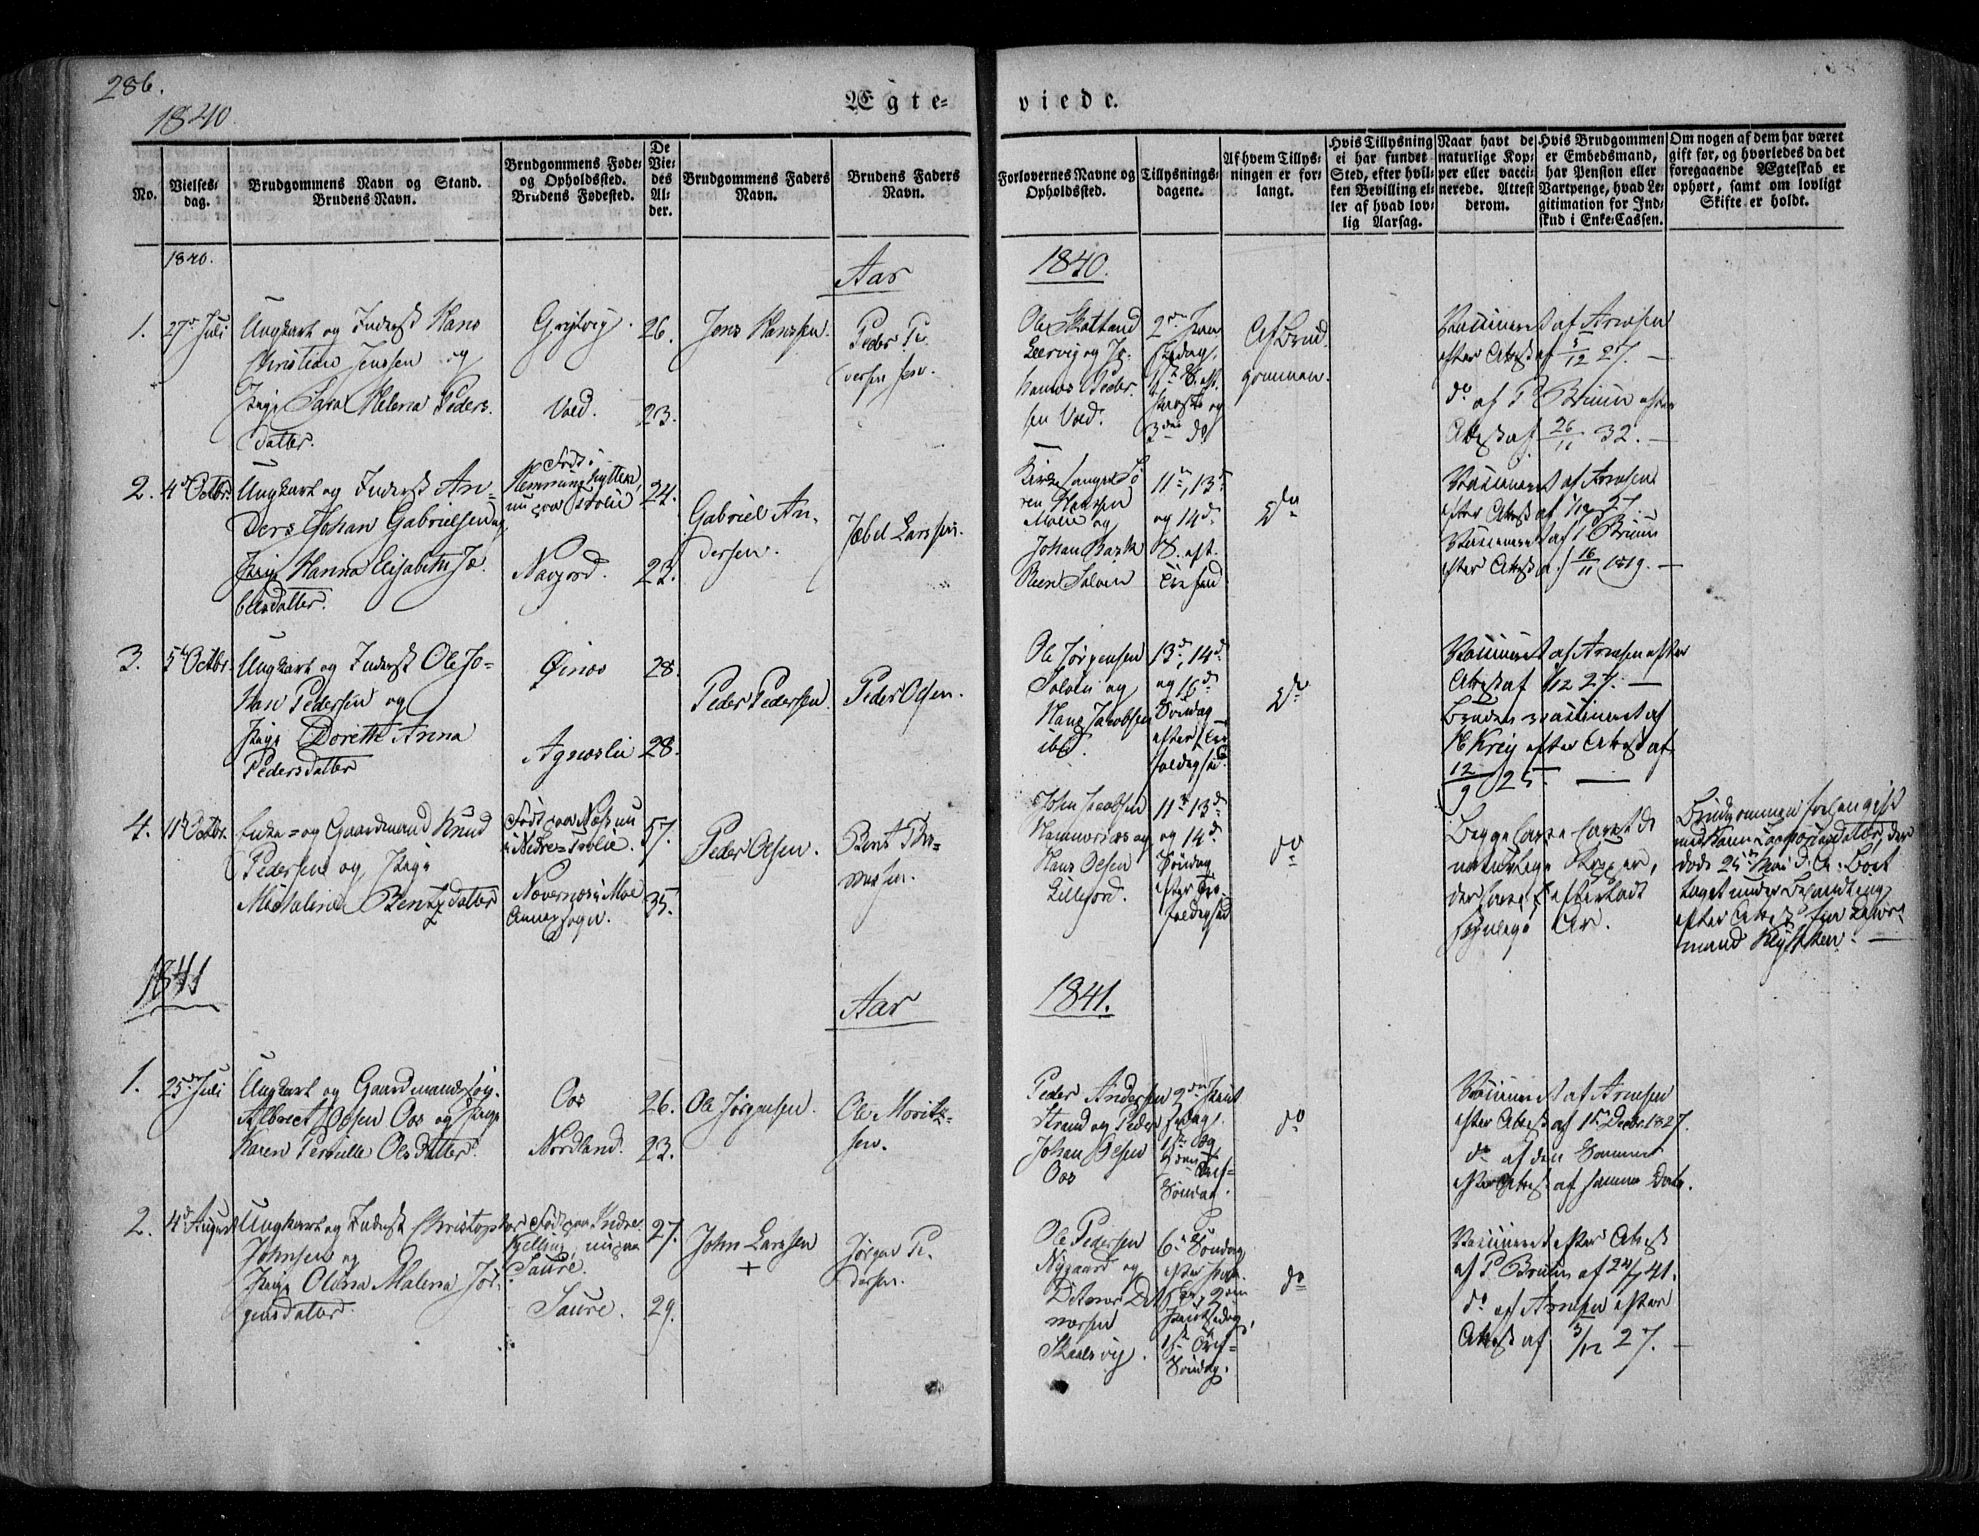 286.
1840
Ægte-
viede.
No.
Vielses-
dag.
Brudgommens Navn og Stand.
Brudens Navn.
Brudgommens Føde-
og Opholdssted.
Brudens Fødested.
De
Vie-
des
Al-
der.
Brudgommens Faders
Navn.
Brudens Faders
Navn.
Forlovernes Navne og
Opholdssted.
Tillysnings-
dagene.
Af hvem Tillys-
ningen er for-
langt.
Hvis Tillysning
ei har fundet
Sted, efter hvil-
ken Bevilling el-
ler af hvad lov-
lig Aarsag.
Naar havt de
naturlige Kop-
per eller vacci-
nerede. Attest
derom.
Hvis Brudgommen
er Embedsmand,
har Pension eller
Vartpenge, hvad Le-
gitimation for Ind-
skud i Enke-Cassen.
Om nogen af dem har været
gift før, og hvorledes da det
foregaaende Ægteskab er
ophørt, samt om lovligt
Skifte er holdt.
1840.
Aar
1840.
1. 27de Juli
Ungkarl og Inderst Hans
Christian Jenssen og
Pige Sara Helena Peders-
datter.
26.
Void.
23.
Jens Hanssen.
Peder Pe-
dersen
Ole
og Jo-
hannes Peder-
sen Void.
Af Brud-
gommen.
Vaccineret af Arnesen
efter Attest af 5/12 27.
do af P Bruun efter
Attest af 26/11 32.
2. 4de Octbr.
Ungkarl og Inderst An-
ders Johan Gabrielsen og
Pige Hanna Elisabeth Jæ-
belsdatter.
Født i
nu paa
24.
Navjord.
23.
Gabriel An-
dersen.
Jæbel Larssen.
Kirkesanger Sö-
ren Hanssen
og
Johan
11te, 13de
og 14de
S. eft.
Do
Vaccineret af Arnesen
efter Attest af
Vaccineret af P Bruun
efter Attest af 16/11 1819.
3. 5te Octbr.
Ungkarl og Inderst Ole Jo-
han Pedersen og
Pige Dorethe Anna
Pedersdatter
Øinæs
28.
Agnæslie
28.
Peder Pedersen.
Peder Olsen.
Ole Jørgensen
og
Hans Jacobsen
ibd.
13de, 14de
og 16de
Søndag
efter
Do
Vaccineret af Arnesen efter
Attest af 1/12 27.
Bruden vaccineret af
efter Attest af
12/9 25.
4. 11te Octbr.
Enke- og Gaardmand Knud
Pedersen og Pige
Bentsdatter
Født paa Næss nu
i Nedre-
57.
i Moe
Annexsogn.
35.
Peder Olsen.
Bent Tho-
massen.
John Jacobsen
Hammernæs og
Hans Olsen
Lillefjord.
11te 13de
og 14de
Søndag
efter
do
Begge have havt de
naturlige Kopper,
der have efterladt
synlige Ar.
Brudgommen for en gift
med
døde 25de Mai d. A. Boet
taget under Behandling
efter Attest fra Lehns-
mand
1841
Aar
1841.
1. 25de Juli
Ungkarl og Gaardmandssøn
Albrect Olsen Oos og Pige
Karen Pernille Olsdatter.
Oos
26.
Nordland.
23.
Ole Jørgensen.
Ole Moritz-
sen.
Peder Andersen
Strand og Peder
Johan Olsen
Oos
do
Vaccineret af Arnesen
efter Attest af 15de Decbr 1827.
do af den Samme
efter Attest af samme Dato.
2. 4de August
Ungkarl og Inderst Christopher
Johnsen og
Pige Olena Malena Jør-
gensdatter
Født paa Indre
Kjelling, nu paa
Saure.
27.
Saure.
29.
John Larssen
+
Jørgen Pe-
dersen.
Ole Pedersen
Nygaard og
Ditmer Det-
mersen
Skaalsvig.
6te Søndag
efter
Søndag.
do
Vaccineret efter Attest
af P Bruun af 24/7 41.
do af Arnesen efter
Attest af 3/12 27.